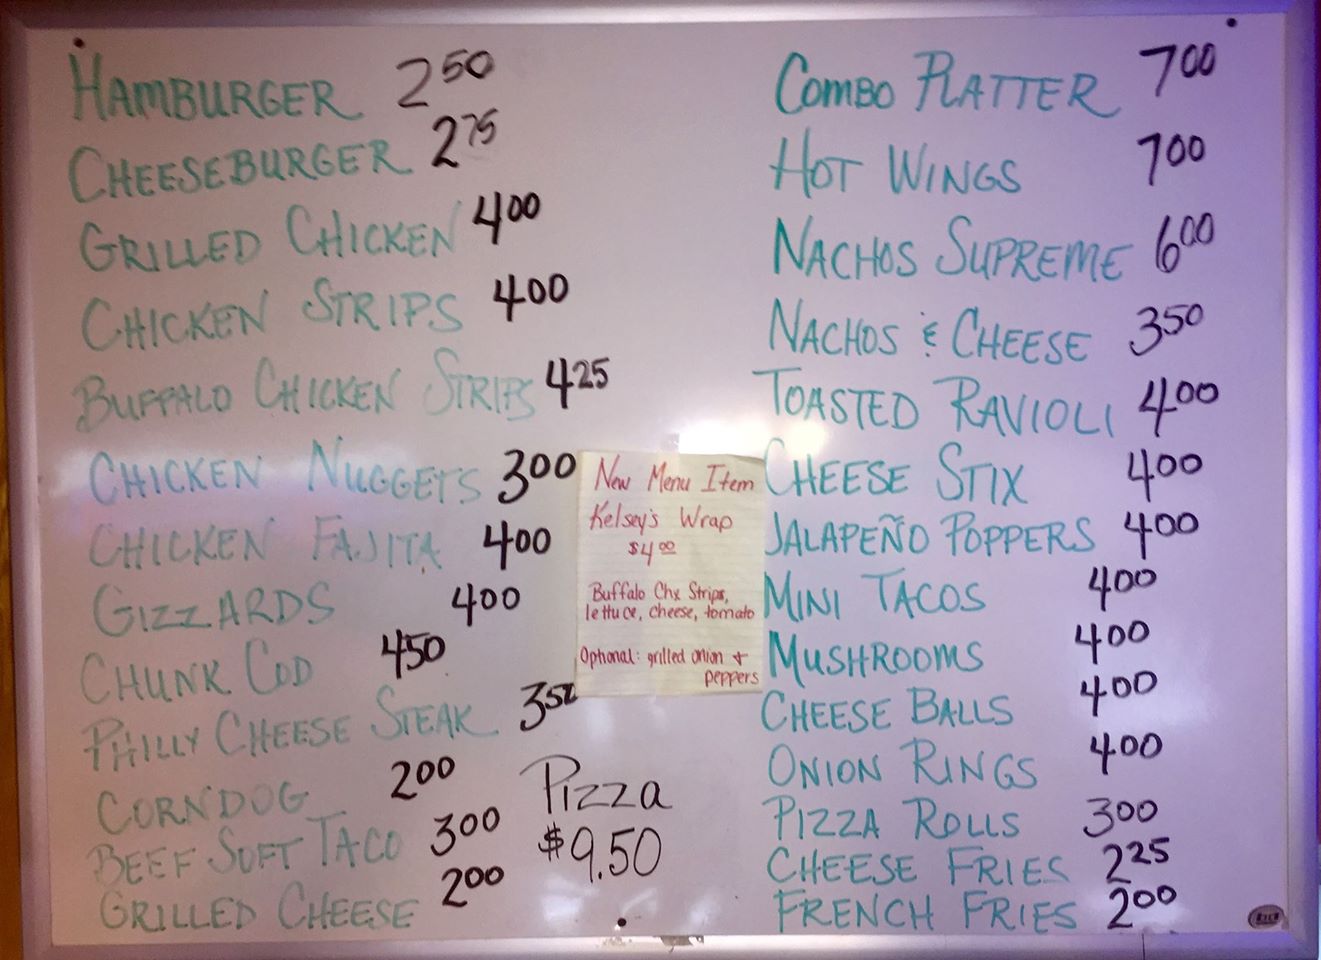 HAMBURGER 2 50
CHEESEBURGER 2 75
GRILLED CHICKEN 4 00
CHICKEN STRIPS 4 00
BUFFALO CHICKEN STRIPS 4 25
CHICKEN NUGGETS 3 00
CHICKEN FAJITA 4 00
GIZZARDS 4 00
CHUNK COD 4 50
PHILLY CHEESE STEAK
CORN DOG 2 00
BEEF SOFT TACO 3 00
GRILLED CHEESE 2 00
New Menu Item
Kelsey's Wrap
$4 00
Buffalo Chx Strips,
lettuce, cheese, tomato
Optional: grilled onion +
peppers
Pizza
$9.50
COMBO PLATTER 7 00
HOT WINGS 7 00
NACHOS SUPREME 6 00
NACHOS & CHEESE 3 50
TOASTED RAVIOLI 4 00
CHEESE STIX 4 00
JALAPEÑO POPPERS 4 00
MINI TACOS 4 00
MUSHROOMS 4 00
CHEESE BALLS 4 00
ONION RINGS 4 00
PIZZA ROLLS 3 00
CHEESE FRIES 2 25
FRENCH FRIES 2 00